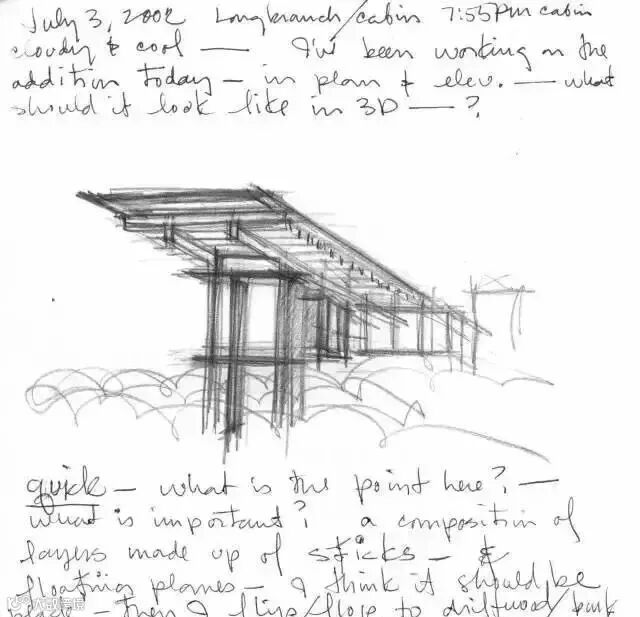 July 3, 2002 Longbranch/cabin 7:55 PM cabin
cloudy & cool — I've been working on the
addition today — in plan & elev. — what
should it look like in 3D — ?
quick — what is the point here? —
what is important? a composition of
layers made up of sticks — &
floating planes — I think it should be
black — then I flip/flop to driftwood/bark